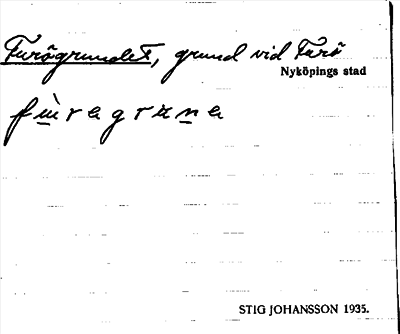 Furögrundet, grund vid Furö
Nyköpings stad
fùragruna
STIG JOHANSSON 1935.